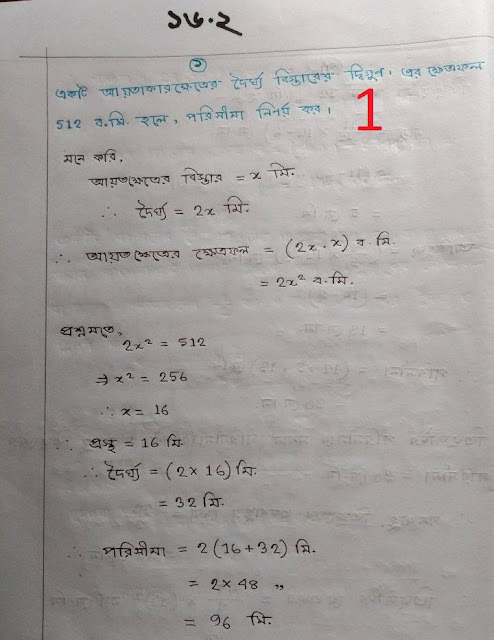 ১৬.২
১
একটি আয়তাকারক্ষেত্রের দৈর্ঘ্য বিস্তারের দ্বিগুন। এর ক্ষেত্রফল
512 ব.মি. হলে, পরিসীমা নির্নয় কর।
1
মনে করি,
আয়তক্ষেত্রের বিস্তার = x মি.
∴ দৈর্ঘ্য = 2x মি.
∴ আয়তক্ষেত্রের ক্ষেত্রফল = (2x . x) ব.মি.
= 2x² ব.মি.
প্রশ্নমতে,
2x² = 512
⇒ x² = 256
∴ x = 16
∴ প্রস্থ = 16 মি.
∴ দৈর্ঘ্য = (2 × 16) মি.
= 32 মি.
∴ পরিসীমা = 2 (16 + 32) মি.
= 2 × 48 ,,
= 96 মি.